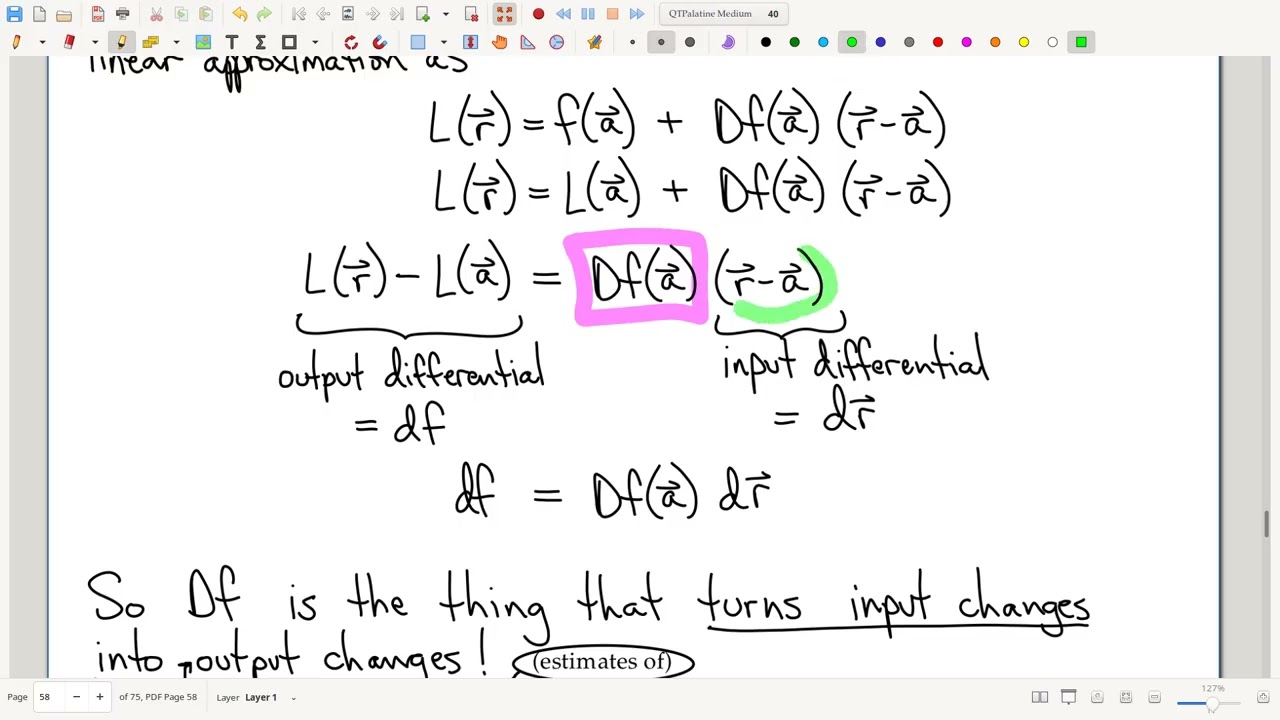 QTPalatine Medium 40
linear approximation as
L(r⃗) = f(a⃗) + Df(a⃗) (r⃗-a⃗)
L(r⃗) = L(a⃗) + Df(a⃗) (r⃗-a⃗)
L(r⃗) - L(a⃗) = Df(a⃗) (r⃗-a⃗)
output differential input differential
= df = dr⃗
df = Df(a⃗) dr⃗
So Df is the thing that turns input changes
into output changes! (estimates of)
Page 58 of 75, PDF Page 58 Layer Layer 1 127%